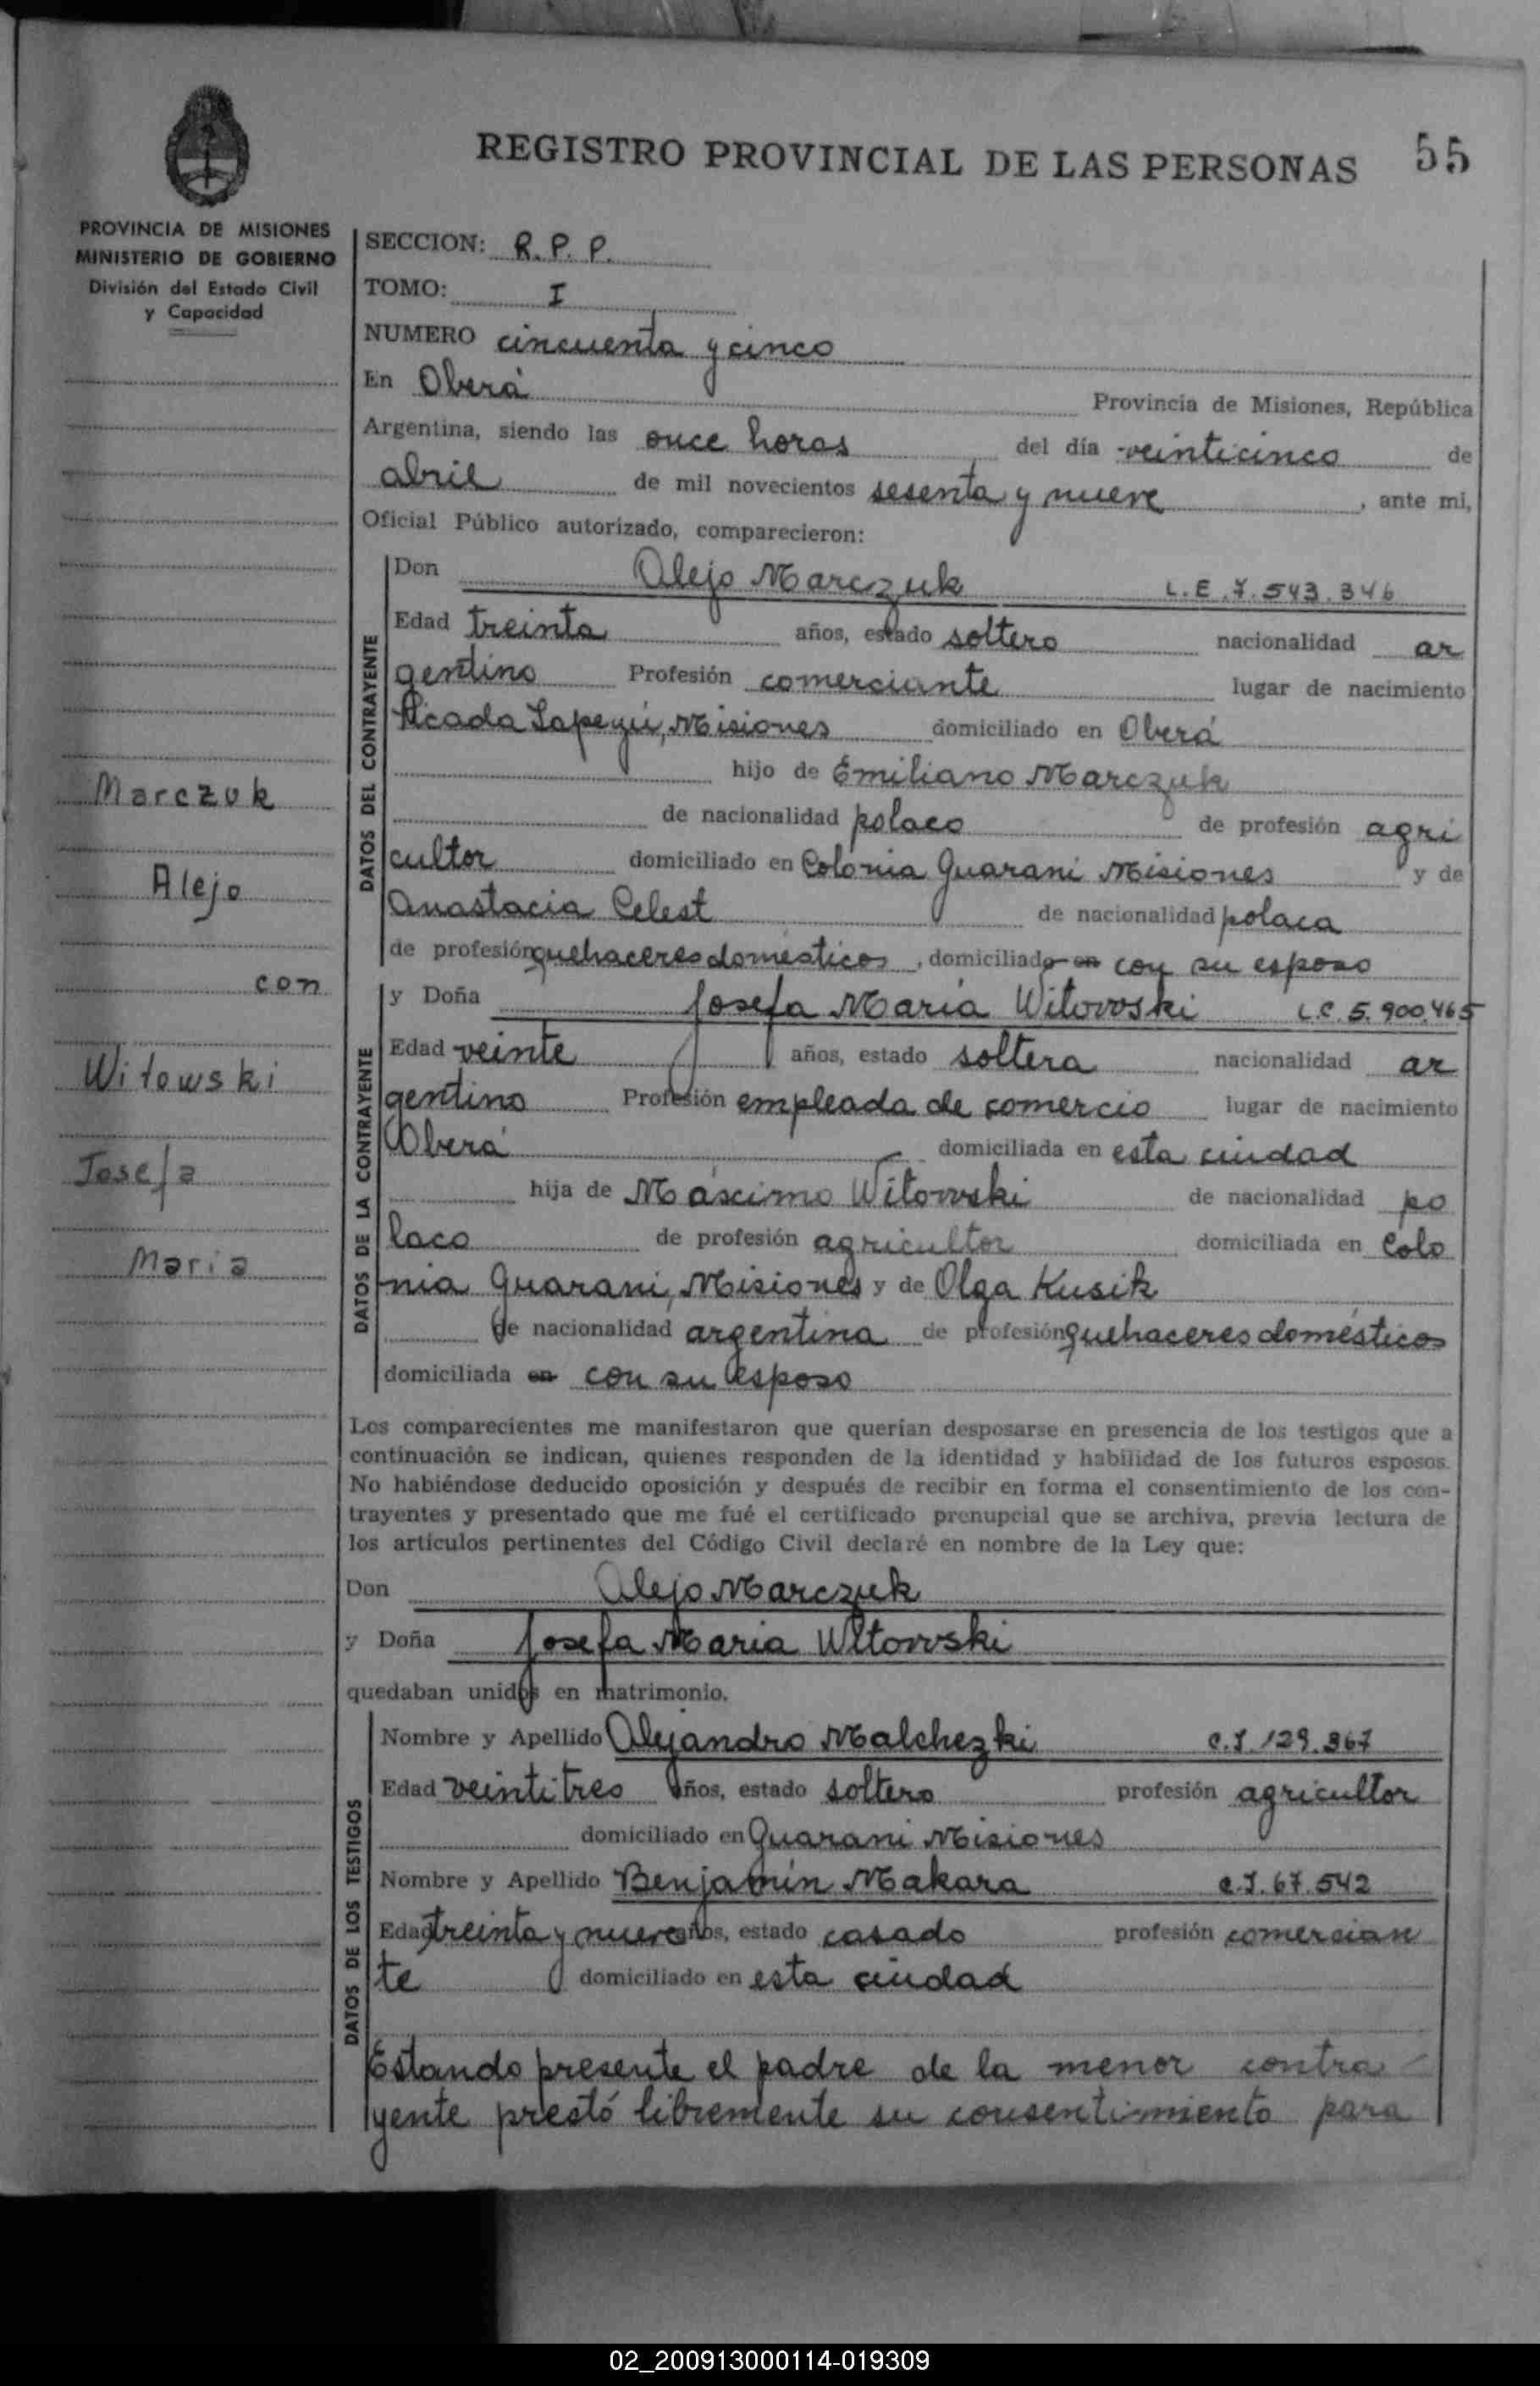 REGISTRO PROVINCIAL DE LAS PERSONAS 55
PROVINCIA DE MISIONES
MINISTERIO DE GOBIERNO
División del Estado Civil
y Capacidad
Marczuk
Alejo
con
Witowski
Josefa
Maria
SECCION: R. P. P.
TOMO: I
NUMERO cincuenta y cinco
En Oberá Provincia de Misiones, República
Argentina, siendo las once horas del día veinticinco de
abril de mil novecientos sesenta y nueve, ante mi,
Oficial Público autorizado, comparecieron:
DATOS DEL CONTRAYENTE
Don Alejo Marczuk L.E. 7.543.346
Edad treinta años, estado soltero nacionalidad ar
gentino Profesión comerciante lugar de nacimiento
Picada Yapeyú, Misiones domiciliado en Oberá
hijo de Emiliano Marczuk
de nacionalidad polaco de profesión agri
cultor domiciliado en Colonia Guarani Misiones y de
Anastacia Celest de nacionalidad polaca
de profesión quehaceres domésticos, domiciliado en con su esposo
DATOS DE LA CONTRAYENTE
y Doña Josefa María Witowski L.C. 5.900.465
Edad veinte años, estado soltera nacionalidad ar
gentino Profesión empleada de comercio lugar de nacimiento
Oberá domiciliada en esta ciudad
hija de Máscimo Witowski de nacionalidad po
laco de profesión agricultor domiciliada en Colo
nia Guarani, Misiones y de Olga Kusik
de nacionalidad argentina de profesión quehaceres domésticos
domiciliada en con su esposo
Los comparecientes me manifestaron que querían desposarse en presencia de los testigos que a
continuación se indican, quienes responden de la identidad y habilidad de los futuros esposos.
No habiéndose deducido oposición y después de recibir en forma el consentimiento de los con-
trayentes y presentado que me fué el certificado prenupcial que se archiva, previa lectura de
los artículos pertinentes del Código Civil declaré en nombre de la Ley que:
Don Alejo Marczuk
y Doña Josefa Maria Witowski
quedaban unidos en matrimonio.
DATOS DE LOS TESTIGOS
Nombre y Apellido Alejandro Malchezki C.I. 129.367
Edad veintitres años, estado soltero profesión agricultor
domiciliado en Guarani Misiones
Nombre y Apellido Benjamín Makara C.I. 67.542
Edad treinta y nueve años, estado casado profesión comercian
te domiciliado en esta ciudad
Estando presente el padre de la menor contra
yente prestó libremente su consentimiento para
02_200913000114-019309